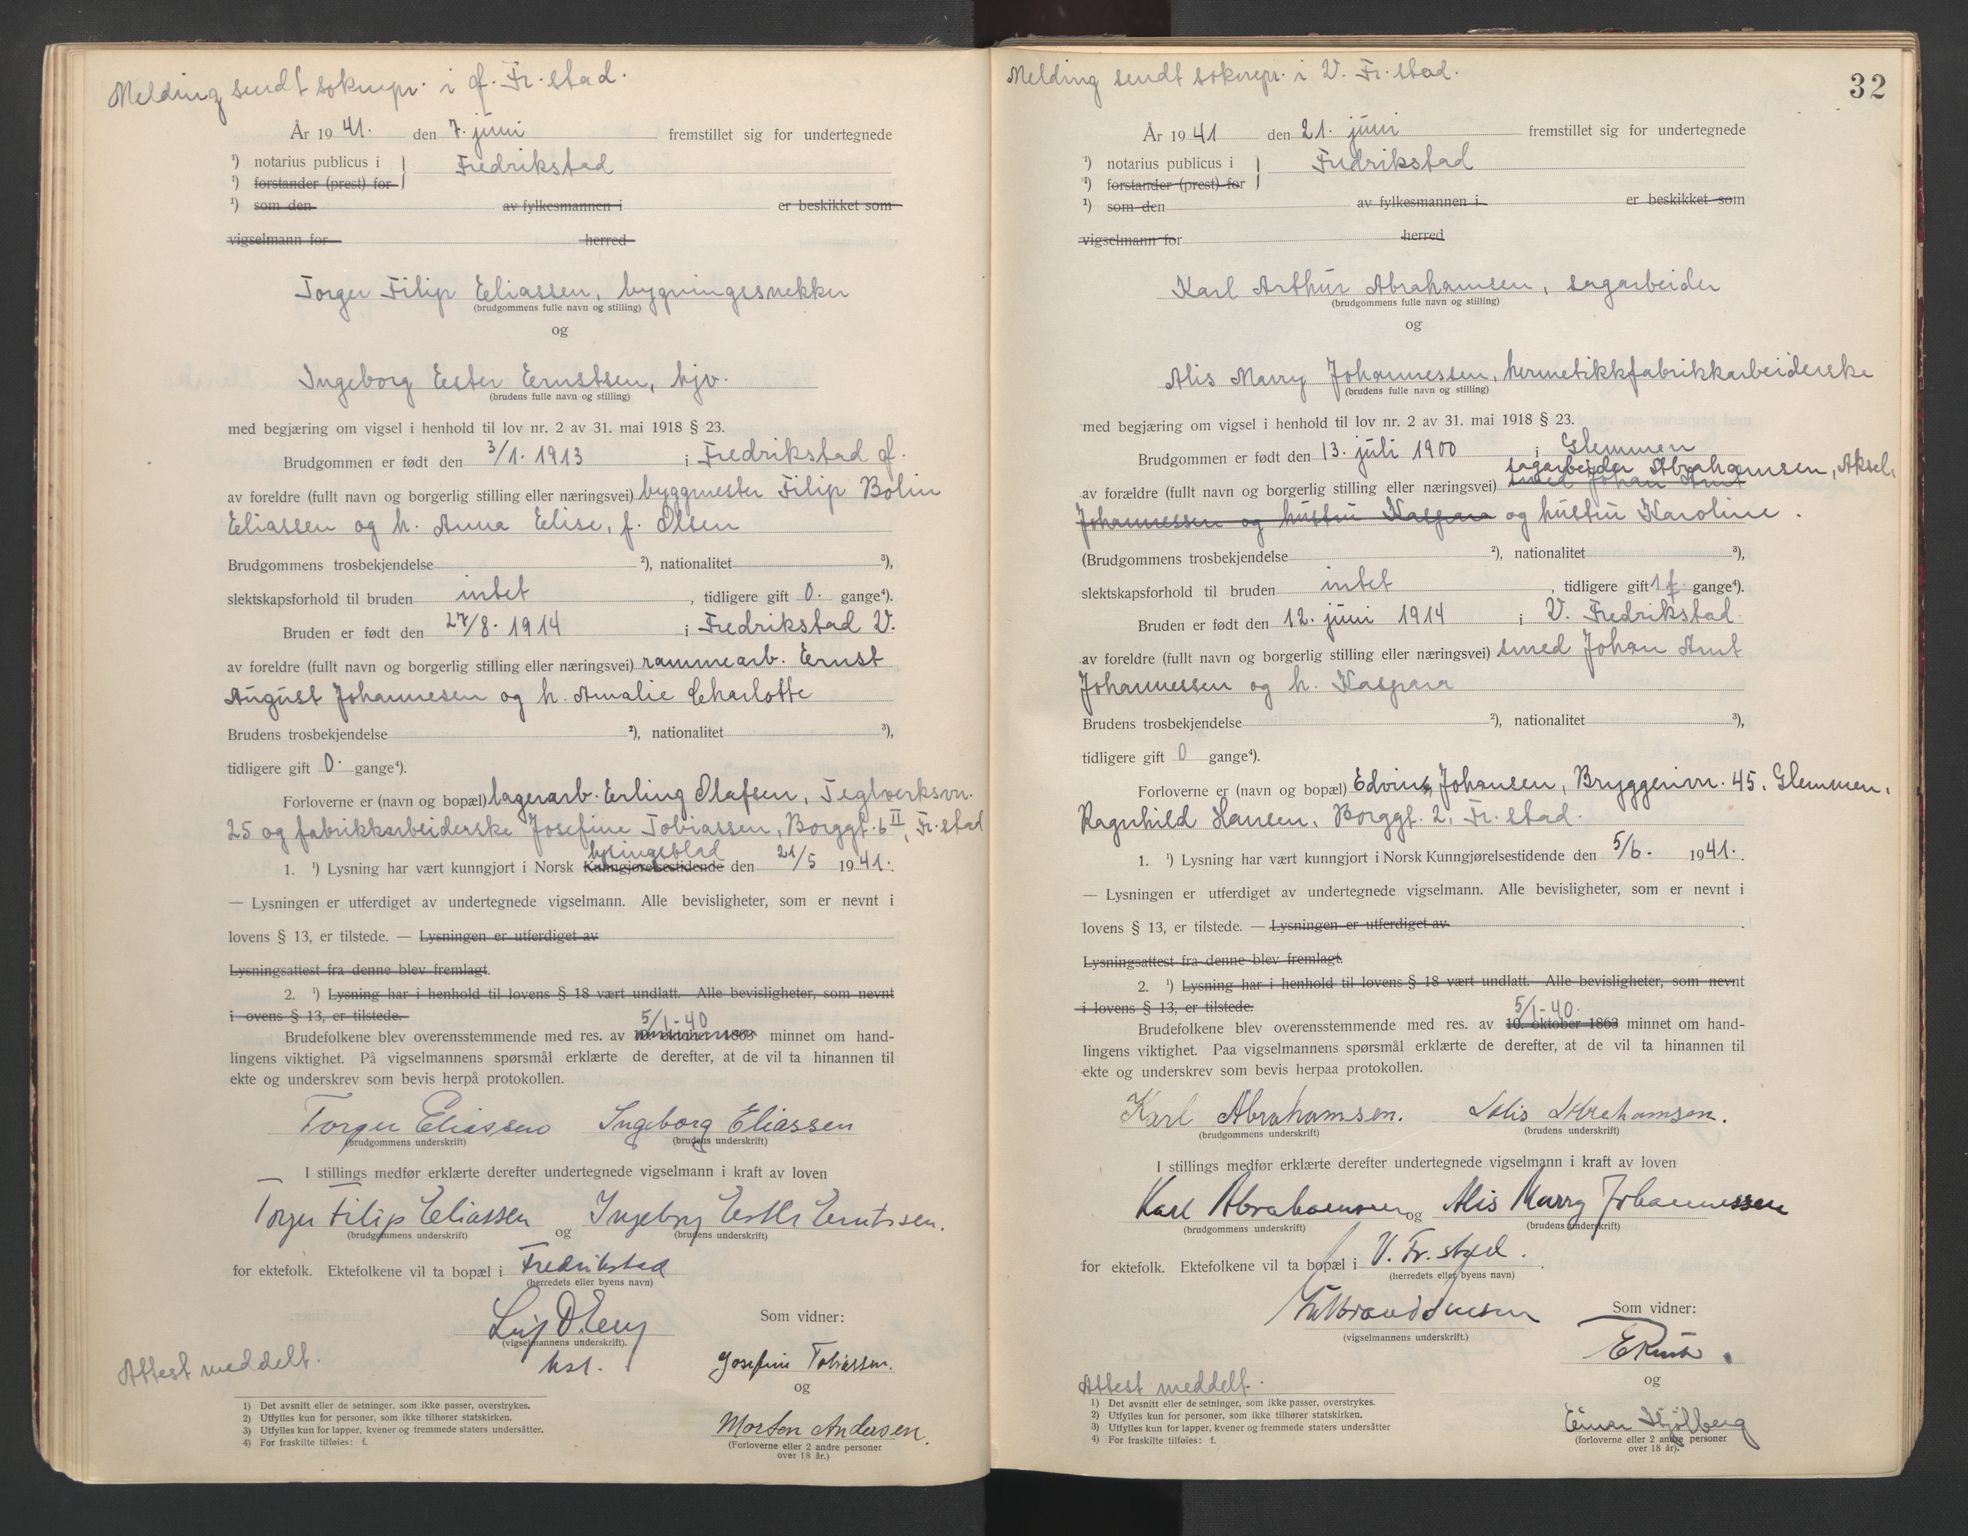 Melding sendt soknepr. i g. Fr.stad.
År 1941. den 7. juni fremstillet sig for undertegnede
¹) notarius publicus i } Fredrikstad
¹) forstander (prest) for
¹) som den av fylkesmannen i er beskikket som
vigselmann for herred
Torger Filip Eliassen, bygningssnekker
(brudgommens fulle navn og stilling)
og
Ingeborg Ester Ernstsen, hjv.
(brudens fulle navn og stilling)
med begjæring om vigsel i henhold til lov nr. 2 av 31. mai 1918 § 23.
Brudgommen er født den 3/1. 1913 i Fredrikstad g.
av foreldre (fullt navn og borgerlig stilling eller næringsvei) byggmester Filip Bolin
Eliassen og h. Anna Elise, f. Olsen
Brudgommens trosbekjendelse ²), nationalitet ³),
slektskapsforhold til bruden intet, tidligere gift 0. gange⁴).
Bruden er født den 27/8. 1914 i Fredrikstad V.
av foreldre (fullt navn og borgerlig stilling eller næringsvei) rammearb. Ernst
August Johannesen og h. Amalie Charlotte
Brudens trosbekjendelse ²), nationalitet ³),
tidligere gift 0. gange⁴).
Forloverne er (navn og bopæl) lagerarb. Erling Olafsen, Teglverksvn.
25 og fabrikkarbeiderske Josefine Tobiassen, Borggt. 6 II, Fr.stad
lysingsblad
1. ¹) Lysning har vært kunngjort i Norsk Kunngjørelsestidende den 21/5 1941.
— Lysningen er utferdiget av undertegnede vigselmann. Alle bevisligheter, som er nevnt i
lovens § 13, er tilstede. — Lysningen er utferdiget av
Lysningsattest fra denne blev fremlagt.
2. ¹) Lysning har i henhold til lovens § 18 vært undlatt. Alle bevisligheter, som nevnt
i ovens § 13, er tilstede.
5/1-40
Brudefolkene blev overensstemmende med res. av 10. oktober 1863 minnet om hand-
lingens viktighet. På vigselmannens spørsmål erklærte de derefter, at de vil ta hinannen til
ekte og underskrev som bevis herpå protokollen.
Torger Eliassen Ingeborg Eliassen
(brudgommens underskrift) (brudens underskrift)
I stillings medfør erklærte derefter undertegnede vigselmann i kraft av loven
Torger Filip Eliassen og Ingeborg Esther Ernstsen.
(brudgommens underskrift) (brudens underskrift)
for ektefolk. Ektefolkene vil ta bopæl i Fredrikstad
(herredets eller byens navn)
Som vidner:
(vigselmannens underskrift).
Attest meddelt.
Josefine Tobiassen.
og
Morten Andersen.
(Forloverne eller 2 andre personer
over 18 år.)
1) Det avsnitt eller de setninger, som ikke passer, overstrykes.
2) Utfylles kun for personer, som ikke tilhører statskirken.
3) Utfylles kun for lapper, kvener og fremmede staters undersåtter.
4) For fraskilte tilføies: f.
32
Melding sendt soknepr. i V. Fr.stad.
År 1941 den 21. juni fremstillet sig for undertegnede
¹) notarius publicus i } Fredrikstad
¹) forstander (prest) for
¹) som den av fylkesmannen i er beskikket som
vigselmann for herred
Karl Arthur Abrahamsen, sagarbeider
(brudgommens fulle navn og stilling)
og
Alis Marry Johannessen, hermetikkfabrikkarbeiderske
(brudens fulle navn og stilling)
med begjæring om vigsel i henhold til lov nr. 2 av 31. mai 1918 § 23.
Brudgommen er født den 13. juli 1900 i Glemmen
sagarbeider Abrahamsen, Aksel
av forældre (fullt navn og borgerlig stilling eller næringsvei) smed Johan Arnt
Johannessen og hustru Kaspara og hustru Karoline.
(Brudgommens trosbekjendelse ²), nationalitet ³),
slektskapsforhold til bruden intet, tidligere gift 1 f. gange⁴).
Bruden er født den 12. juni 1914 i V. Fredrikstad.
av foreldre (fullt navn og borgerlig stilling eller næringsvei) smed Johan Arnt
Johannessen og h. Kaspara
Brudens trosbekjendelse ²), nationalitet ³),
tidligere gift 0 gange⁴).
Forloverne er (navn og bopæl) Edvin Johansen, Bryggerivn. 45, Glemmen,
Ragnhild Hansen, Borggt. 2, Fr.stad.
1. ¹) Lysning har vært kunngjort i Norsk Kunngjørelsestidende den 5/6. 1941.
— Lysningen er utferdiget av undertegnede vigselmann. Alle bevisligheter, som er nevnt i
lovens § 13, er tilstede. — Lysningen er utferdiget av
Lysningsattest fra denne blev fremlagt.
2. ¹) Lysning har i henhold til lovens § 18 vært undlatt. Alle bevisligheter, som nevnt
i lovens § 13, er tilstede.
5/1-40.
Brudefolkene blev overensstemmende med res. av 10. oktober 1863 minnet om hand-
lingens viktighet. Paa vigselmannens spørsmål erklærte de derefter, at de vil ta hinannen til
ekte og underskrev som bevis herpaa protokollen.
Karl Abrahamsen. Alis Abrahamsen.
(brudgommens underskrift) (brudens underskrift)
I stillings medfør erklærte derefter undertegnede vigselmann i kraft av loven
Karl Abrahamsen og Alis Marry Johannessen
(brudgommens underskrift) (brudens underskrift)
for ektefolk. Ektefolkene vil ta bopæl i V. Fr.stad.
(herredets eller byens navn)
Som vidner:
(vigselmannens underskrift)
Attest meddelt.
og
Einar Stjølberg
(forloverne eller 2 andre personer
over 18 år).
1) Det avsnitt eller de setninger, som ikke passer, overstrykes.
2) Utfylles kun for personer, som ikke tilhører statskirken.
3) Utfylles kun for lapper, kvener og fremmede staters undersåtter
4) For fraskilte tilføies: f.